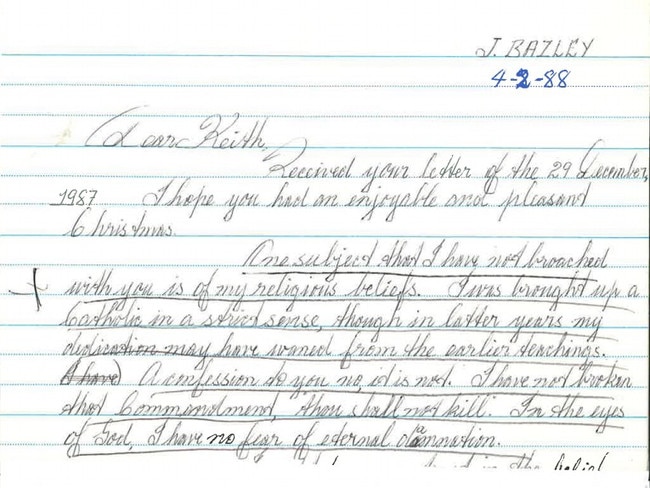 J. BAZLEY
4-2-88
Dear Keith,
Received your letter of the 29 December,
1987 I hope you had an enjoyable and pleasant
Christmas.
One subject that I have not broached
with you is of my religious beliefs. I was brought up a
Catholic in a strict sense, though in latter years my
dedication may have waned from the earlier teachings.
I have) A confession to you no, it is not. I have not broken
that Commandment, thou shall not kill. In the eyes
of God, I have no fear of eternal damnation.
in the belief